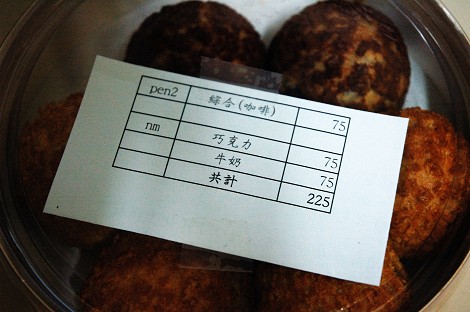 pen2 綜合(咖啡) 75
nm 巧克力 75
牛奶 75
共計 225